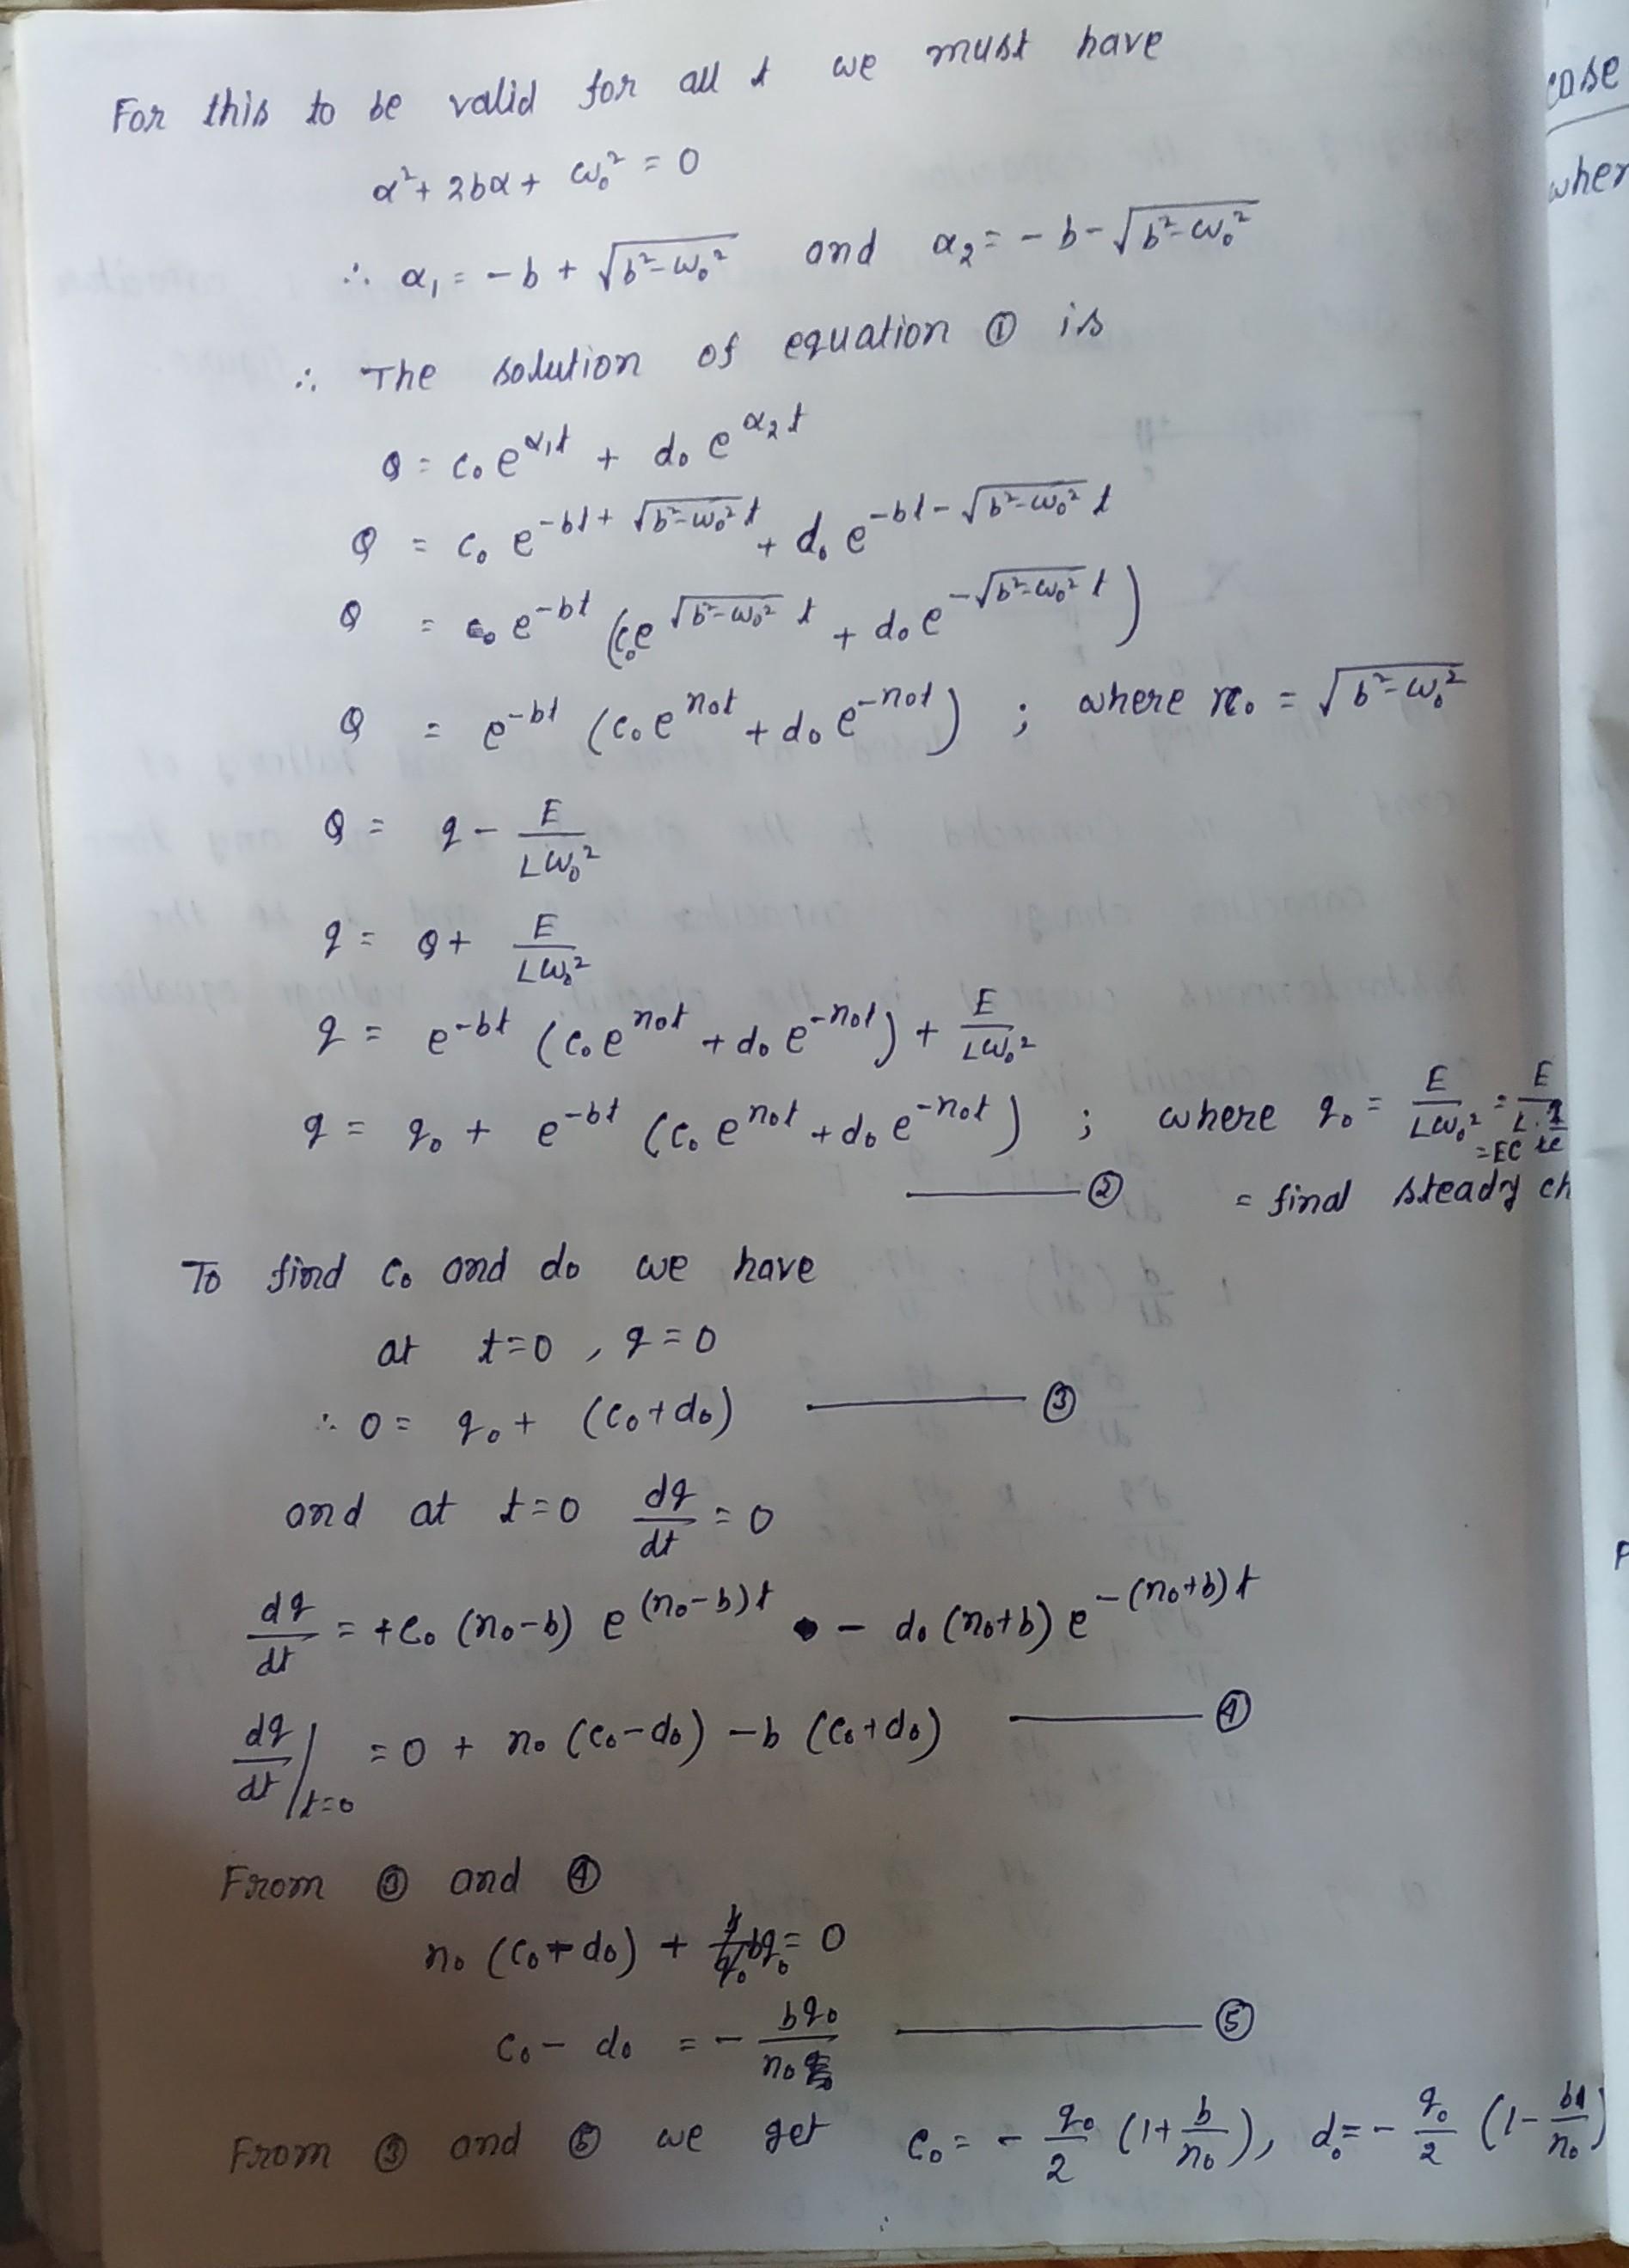 For this to be valid for all t we must have
α² + 2bα + ω₀² = 0
∴ α₁ = -b + √(b²-ω₀²) and α₂ = -b - √(b²-ω₀²)
∴ The solution of equation ① is
Q = c₀ e^(α₁t) + d₀ e^(α₂t)
Q = c₀ e^(-bt + √(b²-ω₀²) t) + d₀ e^(-bt - √(b²-ω₀²) t)
Q = e^(-bt) (c₀e^(√(b²-ω₀²) t) + d₀e^(-√(b²-ω₀²) t))
Q = e^(-bt) (c₀e^(n₀t) + d₀e^(-n₀t)) ; where n₀ = √(b²-ω₀²)
Q = q - E/(Lω₀²)
q = Q + E/(Lω₀²)
q = e^(-bt) (c₀e^(n₀t) + d₀e^(-n₀t)) + E/(Lω₀²)
q = q₀ + e^(-bt) (c₀e^(n₀t) + d₀e^(-n₀t)) ; where q₀ = E/(Lω₀²) = E/(L·1/LC) = EC
—— ② = final steady ch
To find c₀ and d₀ we have
at t=0, q=0
∴ 0 = q₀ + (c₀+d₀) —— ③
and at t=0 dq/dt = 0
dq/dt = +c₀ (n₀-b) e^((n₀-b)t) - d₀ (n₀+b) e^(-(n₀+b)t)
dq/dt|t=0 = 0 + n₀ (c₀-d₀) - b (c₀+d₀) —— ④
From ③ and ④
n₀ (c₀-d₀) + bq₀ = 0
c₀ - d₀ = - bq₀/n₀ —— ⑤
From ③ and ⑤ we get c₀ = - q₀/2 (1+ b/n₀), d₀ = - q₀/2 (1- b/n₀)
case
wher